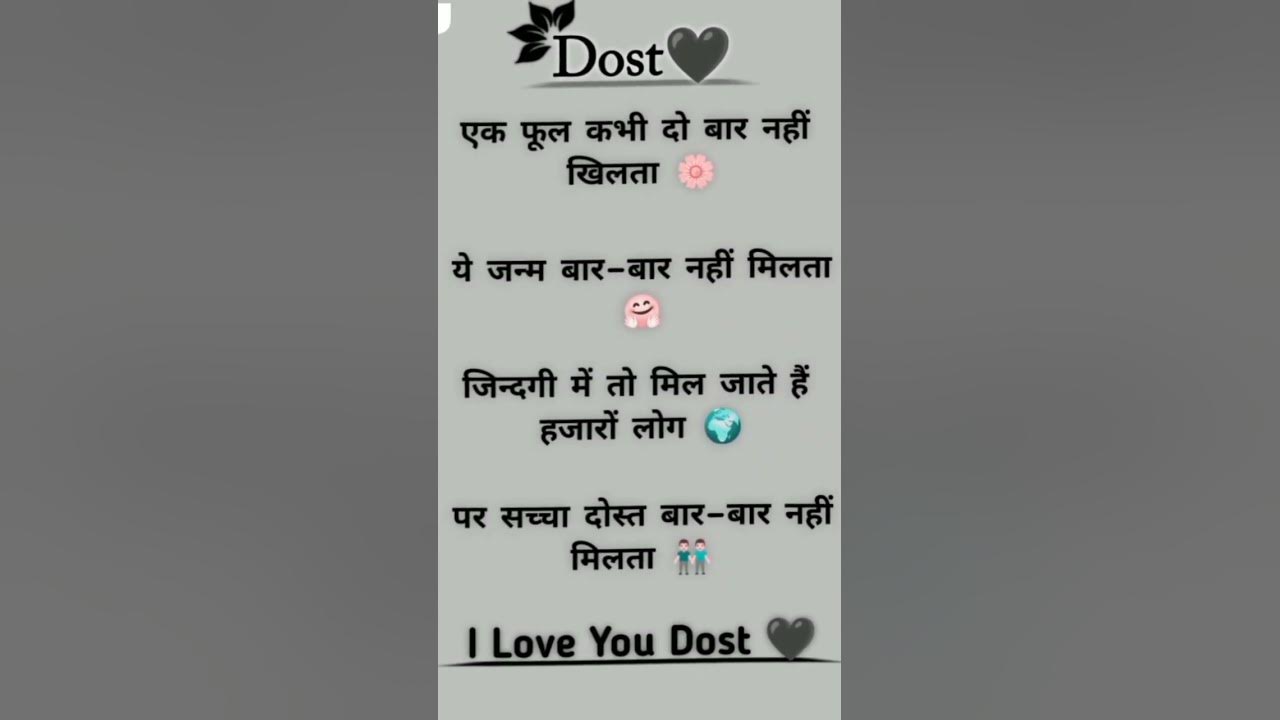 Dost🖤
एक फूल कभी दो बार नहीं
खिलता 🌸
ये जन्म बार-बार नहीं मिलता
🤗
जिन्दगी में तो मिल जाते हैं
हजारों लोग 🌍
पर सच्चा दोस्त बार-बार नहीं
मिलता 👬
I Love You Dost 🖤